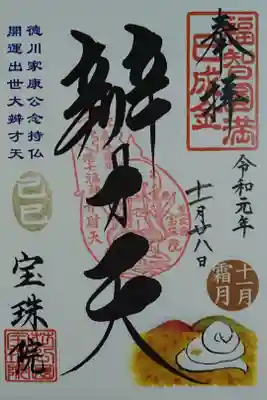 奉拝
福智円満
巳成金
令和元年
十一月廿八日
十一月
霜月
辨才天
徳川家康公念持仏
開運出世大辨才天
己巳
宝珠院